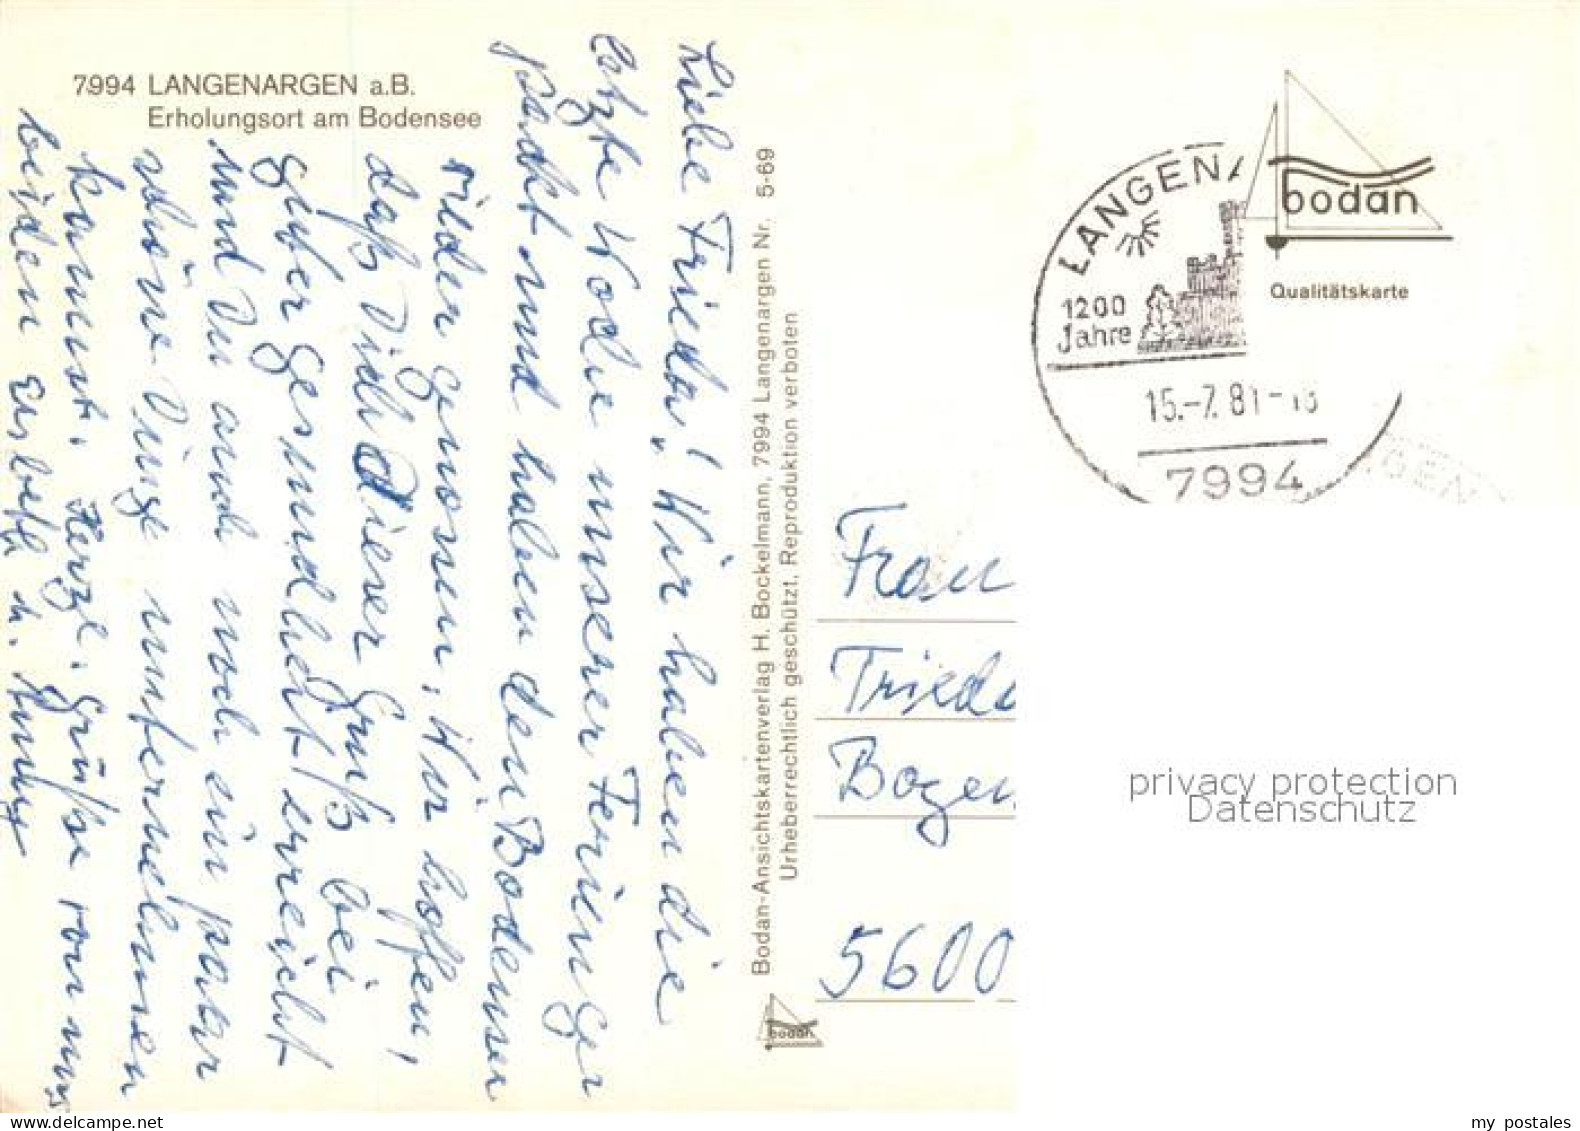 7994 LANGENARGEN a.B.
Erholungsort am Bodensee
Liebe Frieda! Wir haben die
letzte Woche unserer Ferien ge
packt und haben den Bodensee
wieder genossen. Wir hoffen,
daß Dich dieser Gruß bei
guter Gesundheit erreicht
und Du auch noch ein paar
schöne Dinge unternehmen
kannst. Herzl. Grüße von uns
beiden Elsbeth u.
Bodan-Ansichtskartenverlag H. Bockelmann, 7994 Langenargen Nr. 5-69
Urheberrechtlich geschützt. Reproduktion verboten
bodan
LANGENA
1200
Jahre
15.-7.81-18
7994
GEN
bodan
Qualitätskarte
Frau
Frieda
Bogen
5600
privacy protection
Datenschutz
www.delcampe.net
my_postales